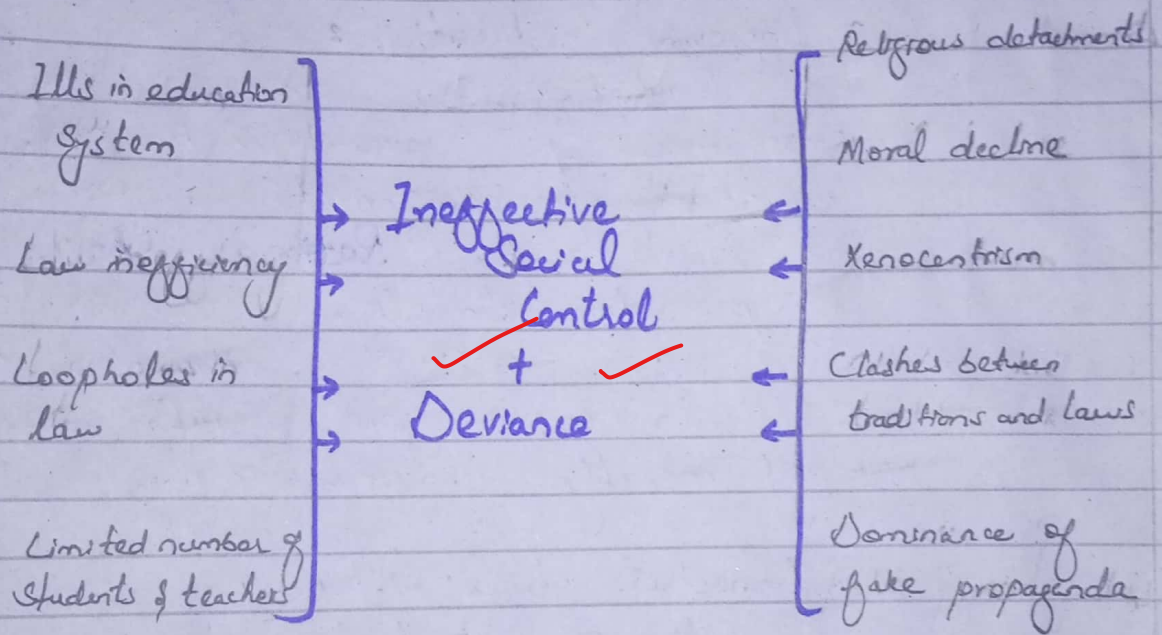 Ills in education
system
Law inefficiency
Loopholes in
law
Limited number of
students & teachers
Ineffective
Social
Control
+
Deviance
Religious detachments
Moral decline
Xenocentrism
Clashes between
traditions and laws
Dominance of
fake propaganda